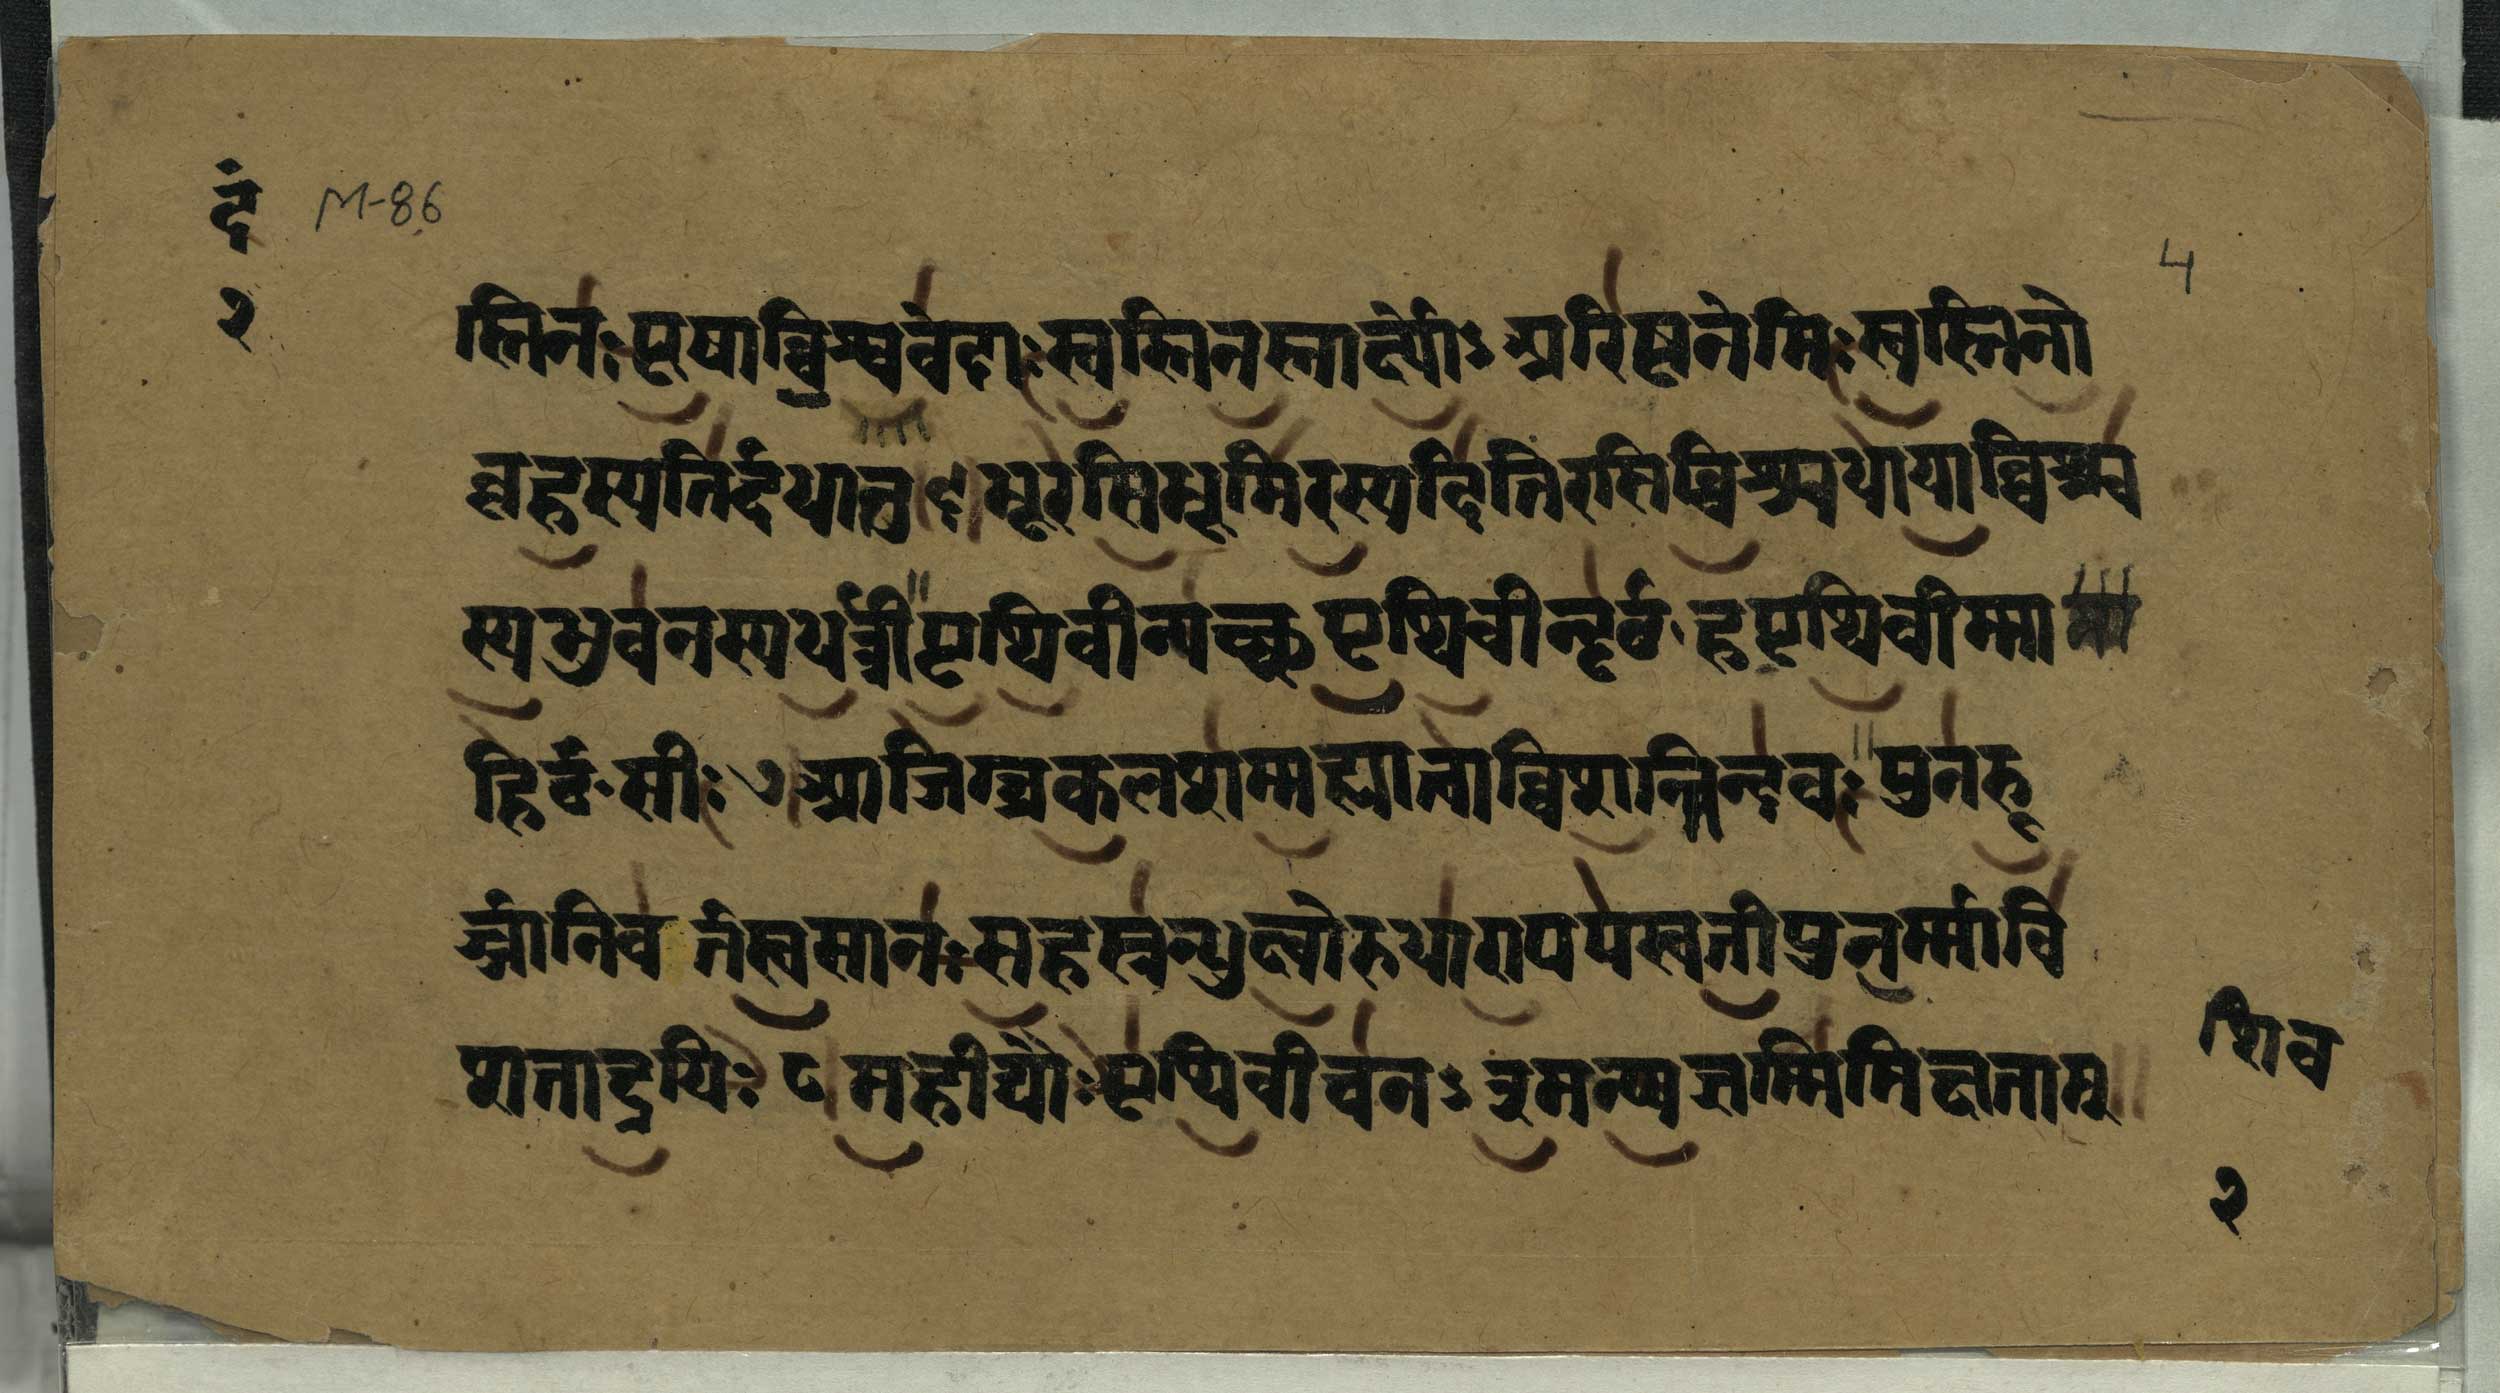 दं
M-86
२
4
स्तिनः पूषाव्विश्ववेदाः स्वस्तिनस्तार्क्ष्योऽ अरिष्टनेमिः स्वस्तिनो
बृहस्प्पतिर्दधातु ६ भूरसिभूमिरस्यदितिरसिव्विश्वधायाव्विश्व
स्यभुवनस्यधर्त्री पृथिवीय्यच्छ पृथिवीन्दृर्ठ० हपृथिवीम्मा
हिर्ठ० सीः ७ आजिग्घ्रकलशम्मह्यात्वाव्विशन्त्विन्दवः पुनरू
र्ज्जानिव र्तस्वसानः सहस्रन्धुक्ष्वोरुधारापयस्वतीपुनर्म्मावि
शताद्रयिः ८ महीद्यौः पृथिवीचनऽ इमय्यज्ञम्मिमिक्षताम्
शिव
२